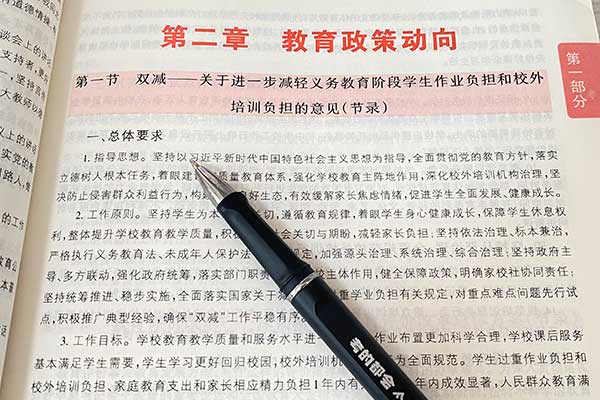 第二章 教育政策动向
第一节 双减——关于进一步减轻义务教育阶段学生作业负担和校外
培训负担的意见(节录)
第一部分
一、总体要求
1. 指导思想。坚持以习近平新时代中国特色社会主义思想为指导,全面贯彻党的教育方针,落实
立德树人根本任务,着眼建 质量教育体系,强化学校教育主阵地作用,深化校外培训机构治理,坚
决防止侵害群众利益行为,构建 良好生态,有效缓解家长焦虑情绪,促进学生全面发展、健康成长。
2. 工作原则。坚持学生为本 关切,遵循教育规律,着眼学生身心健康成长,保障学生休息权
利,整体提升学校教育教学质量,积 社会关切与期盼,减轻家长负担;坚持依法治理、标本兼治,
严格执行义务教育法、未成年人保护法 规定,加强源头治理、系统治理、综合治理;坚持政府主
导、多方联动,强化政府统筹,落实部门职责 校主体作用,健全保障政策,明确家校社协同责任;
坚持统筹推进、稳步实施,全面落实国家关于减 重学业负担有关规定,对重点难点问题先行试
点,积极推广典型经验,确保“双减”工作平稳有序
3. 工作目标。学校教育教学质量和服务水平进一 作业布置更加科学合理,学校课后服务
基本满足学生需要,学生学习更好回归校园,校外培训机 为全面规范。学生过重作业负担和
校外培训负担、家庭教育支出和家长相应精力负担1年内有 年内成效显著,人民群众教育满
考的都会